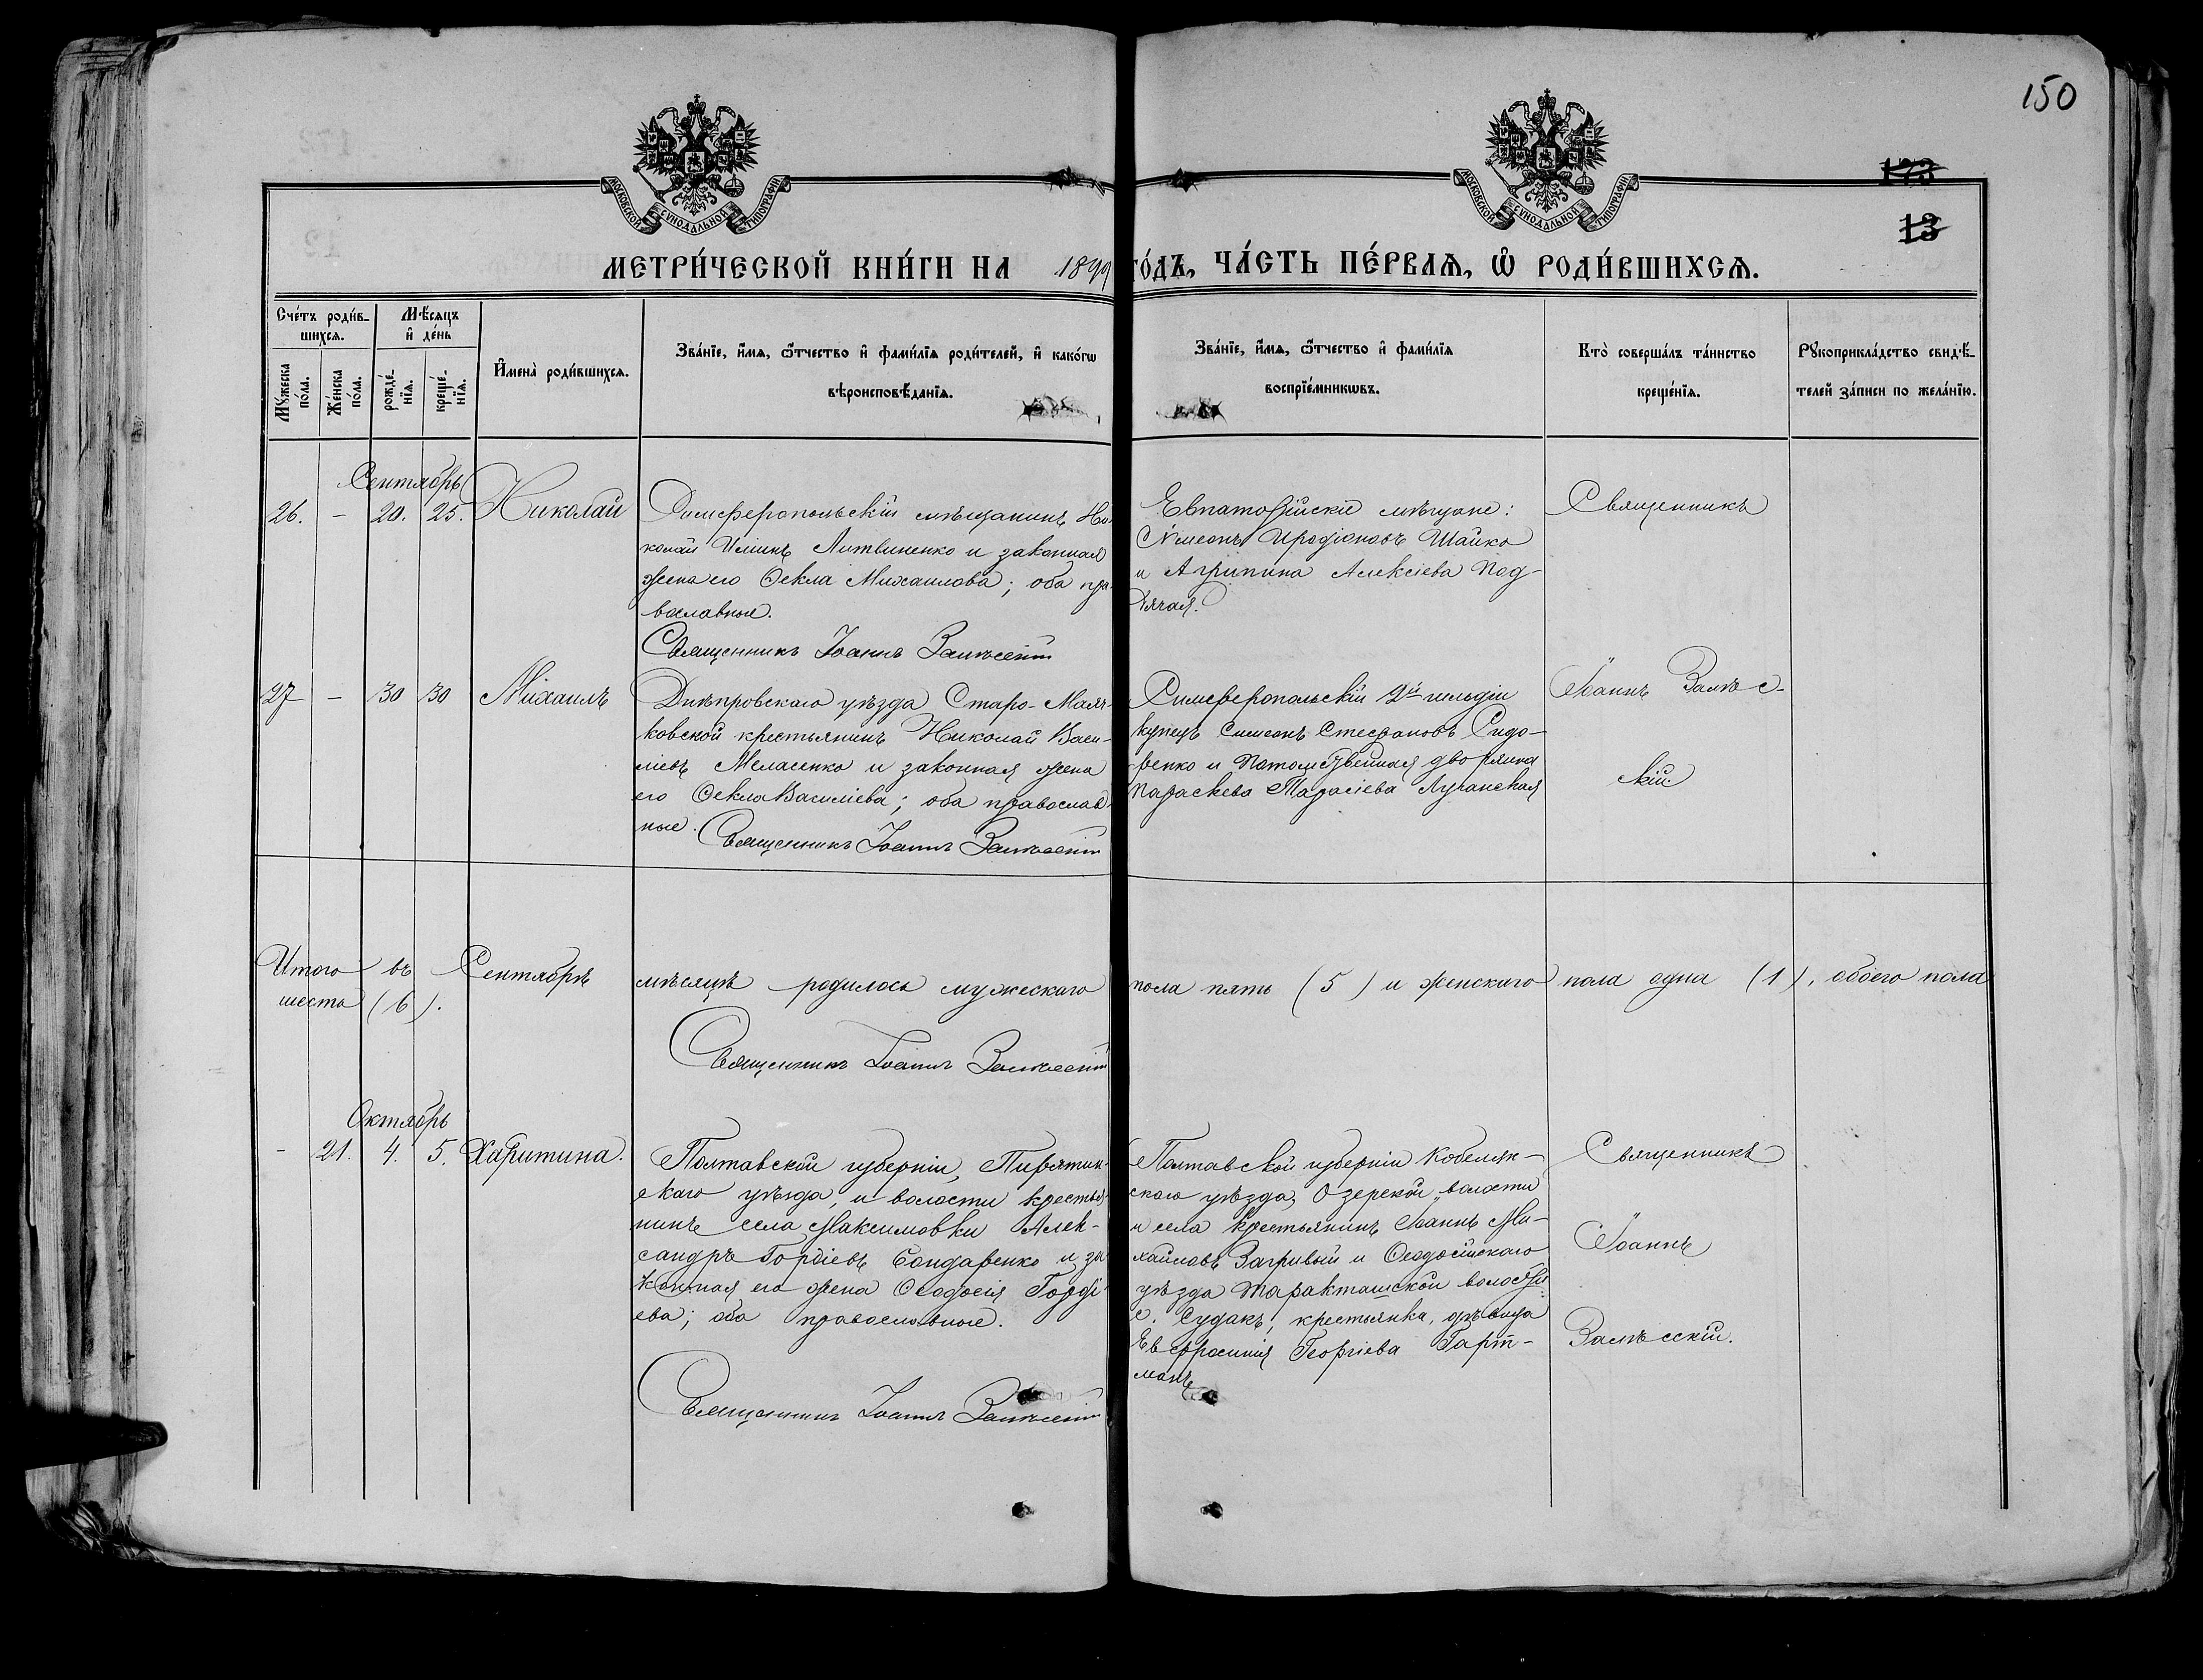 150
173
13
МОСКОВСКОЙ СУНОДАЛЬНОЙ ТИПОГРАФІИ
МОСКОВСКОЙ СУНОДАЛЬНОЙ ТИПОГРАФІИ
МЕТРИ́ЧЕСКОЙ КНИ́ГИ НА 1899 ГО́ДЪ, ЧА́СТЬ ПЕ́РВАѦ, Ѡ҆ РОДИ́ВШИХСѦ.
Сче́тъ роди́в-
шихсѧ.
Мꙋ́жеска по́ла.
Же́нска по́ла.
Мѣ́сѧцъ
и҆ де́нь
рожде́-нїѧ.
креще́-нїѧ.
И҆мена̀ роди́вшихсѧ.
Зва́нїе, и҆́мѧ, ѻ҆́тчество и҆ фами́лїѧ роди́телей, и҆ како́гѡ
вѣроисповѣ́данїѧ.
Зва́нїе, и҆́мѧ, ѻ҆́тчество и҆ фами́лїѧ
воспрїе́мникѡвъ.
Кто̀ соверша́лъ та́инство
креще́нїѧ.
Рꙋкоприкла́дство свидѣ́-
телей за́писи по жела́нїю.
Сентябрь
26. - 20. 25. Николай
Симферопольскій мѣщанинъ Ни-
колай Литвиненко и законная
жена его Ѳекла Михаилова; оба пра-
вославные.
Священникъ Іоаннъ Залѣсскій
Евпаторійскіе мѣщане:
Сѵмеонъ Иродіоновъ Шайко
и Агрипина Алексіева Под-
Священникъ
27 - 30 30 Михаилъ
Днѣпровскаго уѣзда Старо-Маяч-
ковской крестьянинъ Николай Васи-
ліевъ и законная жена
его Ѳекла Василіева; оба православ-
ные. Священникъ Іоаннъ Залѣсскій
Симферопольскій 2й гильдіи
купецъ Симеонъ Стефановъ Сидо-
ренко и Потомственная дворянка
Параскева Тарасіева Луганская
Іоаннъ Залѣс-
скій.
Итого въ Сентябрѣ мѣсяцѣ родилось мужескаго пола пять (5) и женскаго пола одна (1), обоего пола
шесть (6).
Священникъ Іоаннъ Залѣсскій
Октябрь
- 21. 4. 5. Харитина.
Полтавской губерніи, Пирятин-
скаго уѣзда, и волости крестья-
нинъ села Максимовки Алек-
сандръ Гордіевъ Бондаренко и за-
конная его жена Ѳеодосія Горді-
ева; оба православные.
Священникъ Іоаннъ Залѣсскій
Полтавской губерніи Кобеляк-
скаго уѣзда, Озерской волости
и села крестьянинъ Іоаннъ Ми-
хайловъ Загривый и Ѳеодосійскаго
уѣзда Таракташской волости
с. Судакъ, крестьянка, дѣвица
Евфросинія Георгіева Гарт-
манъ
Священникъ
Іоаннъ
Залѣсскій.